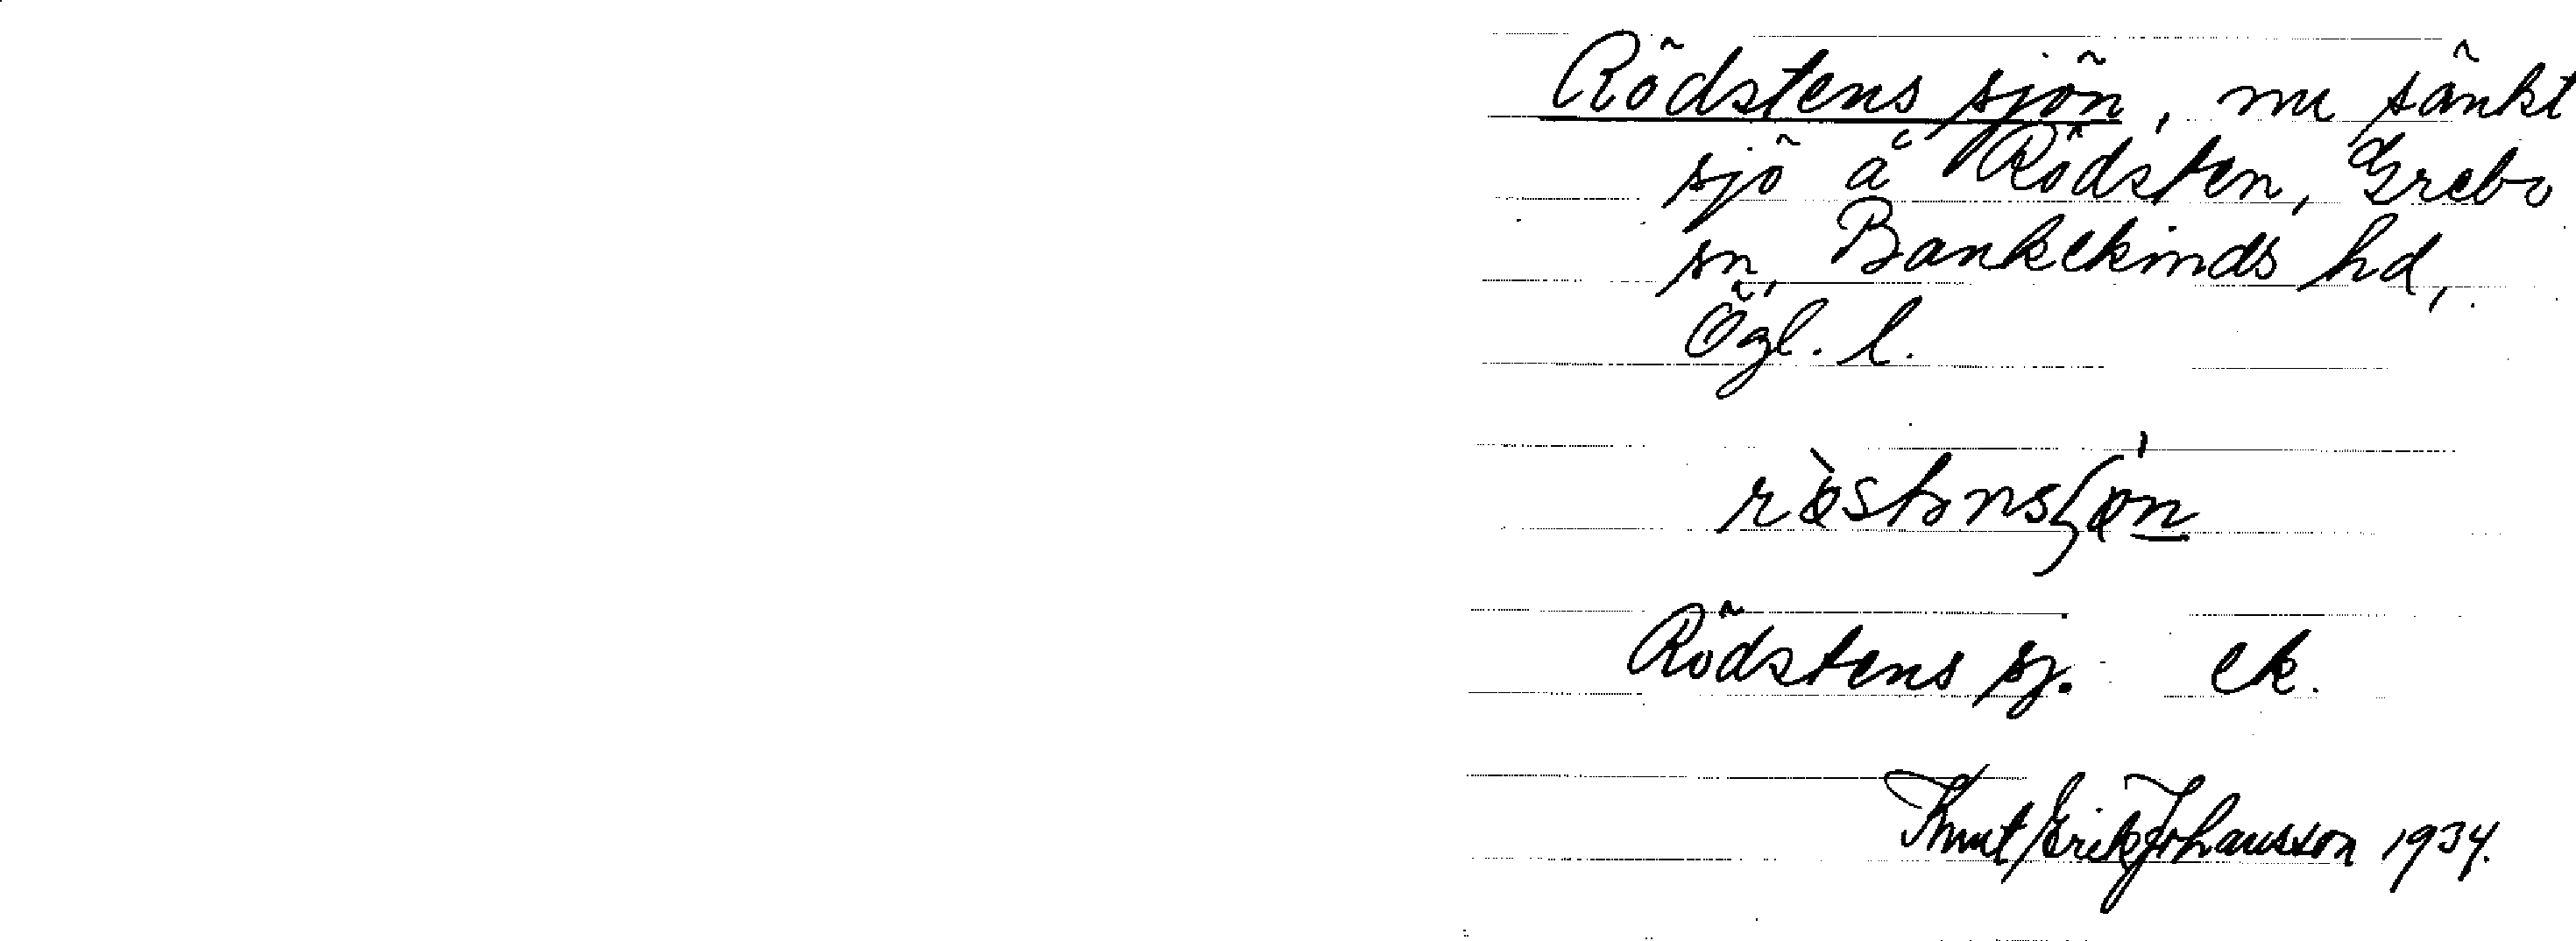 Rödstens sjön, nu sänkt
sjö å Rödsten, Grebo
sn, Bankekinds hd,
Ögl. l.
Rödstens sj. ek.
Knut Erik Johansson 1934.